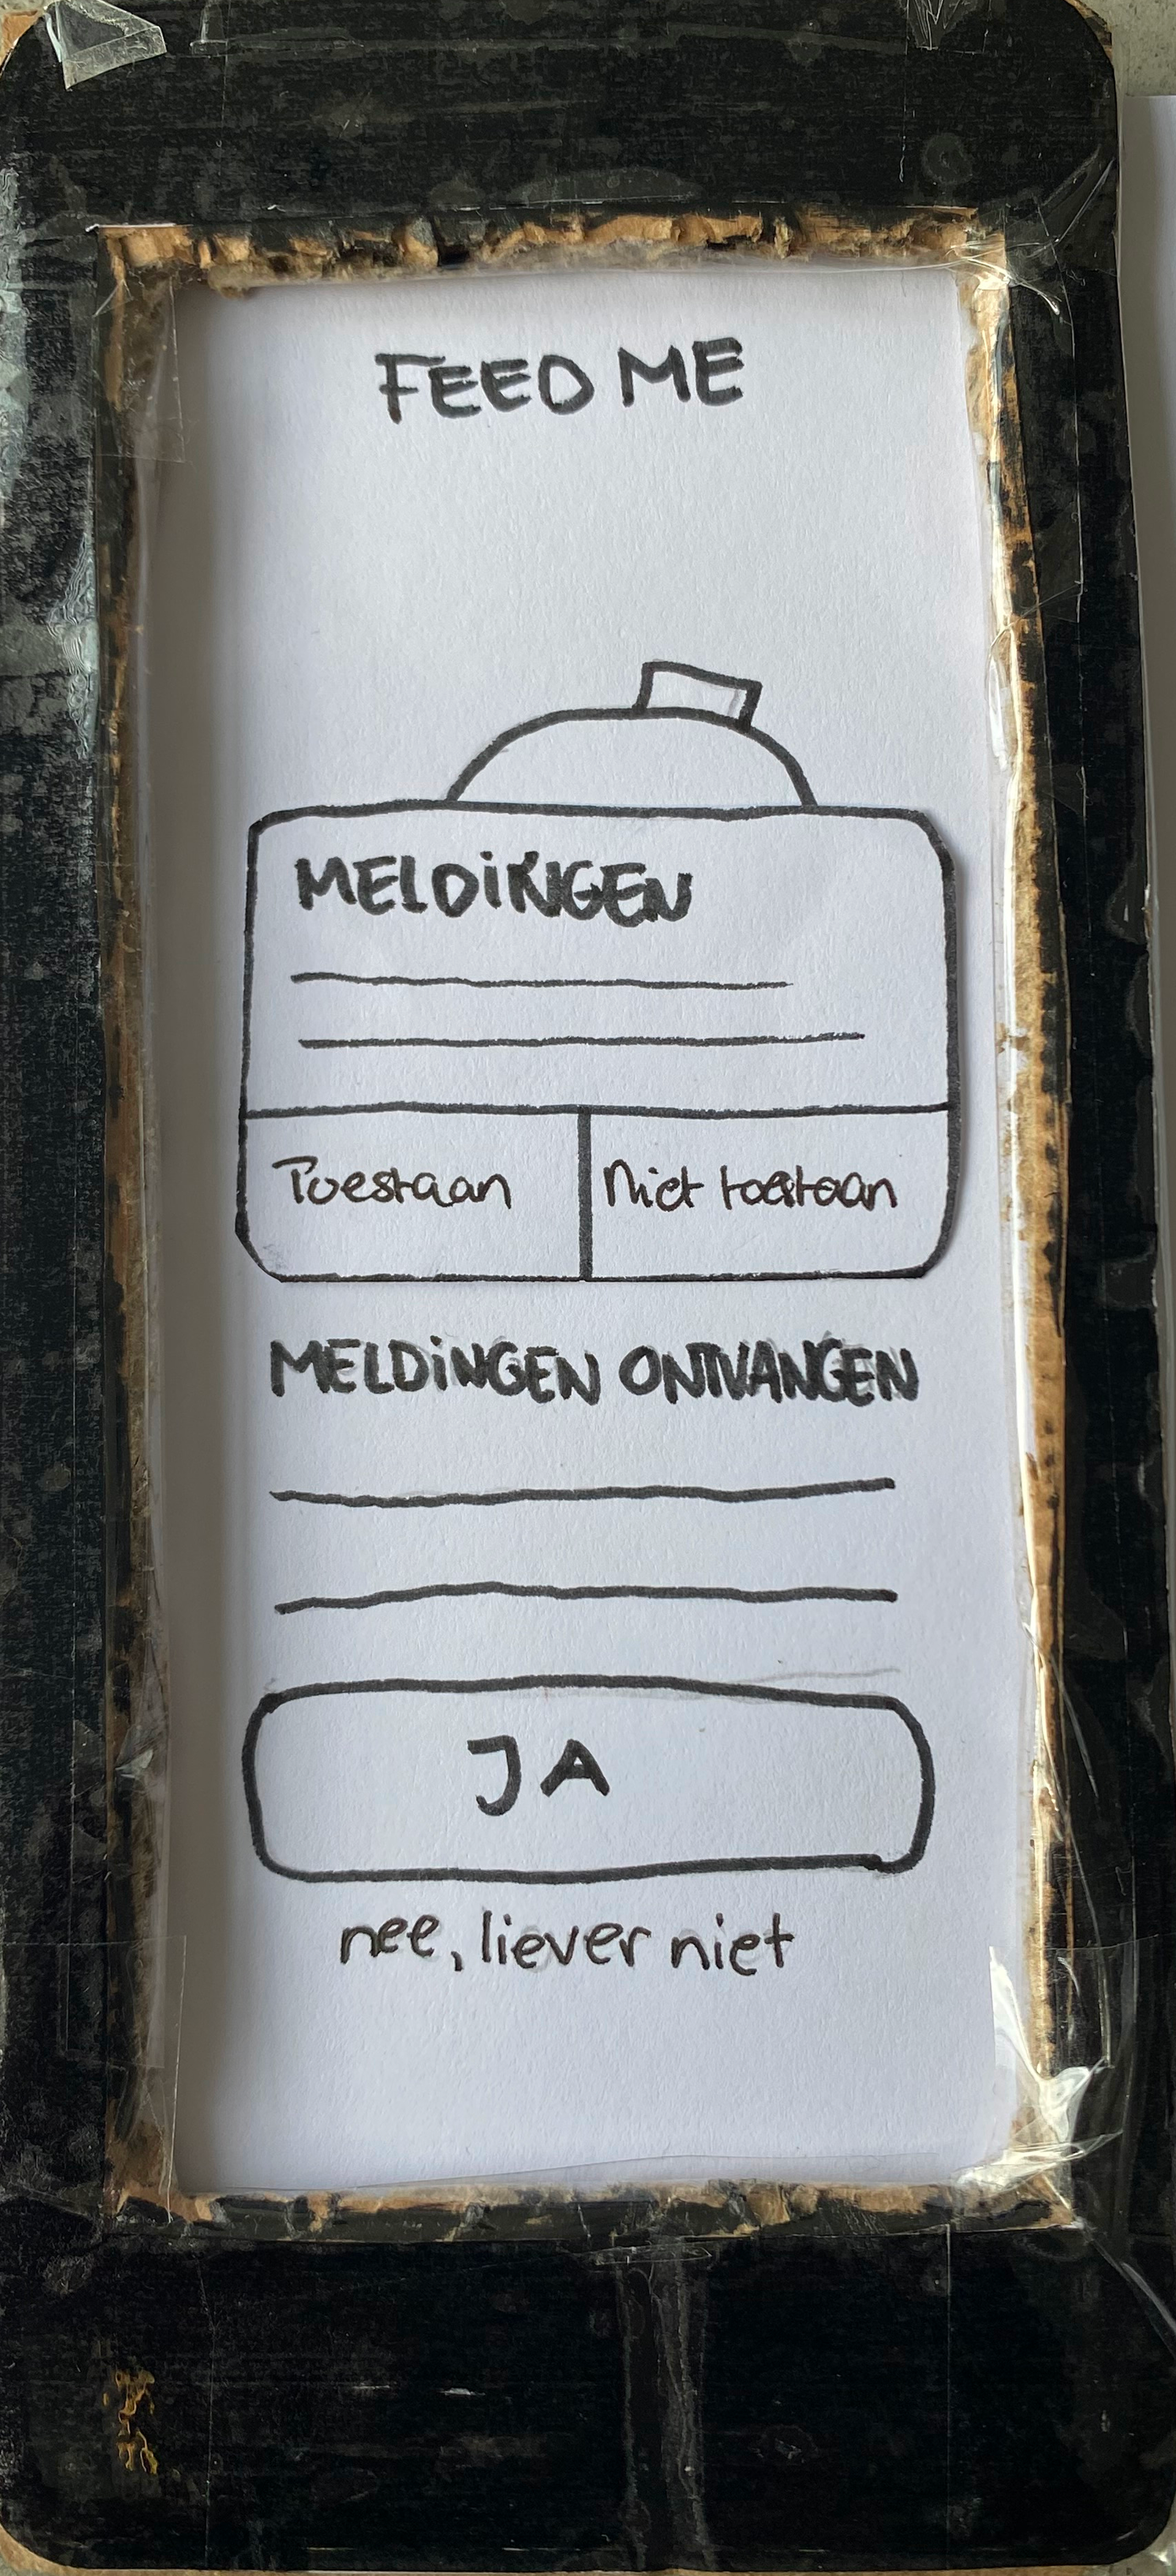 FEED ME
MELDiNGEN
Toestaan
Niet toestaan
MELDiNGEN ONTVANGEN
JA
nee, liever niet